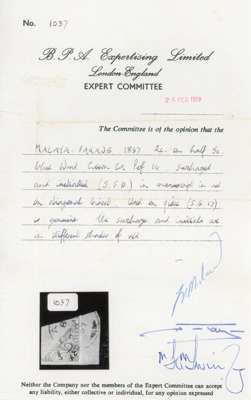 No. 1037
B.P.A. Expertising Limited
London England
EXPERT COMMITTEE
25 FEB
The Committee is of the opinion that the
MALAYA-PAHANG 1897 2c. on half 5c.
blue Wmk Crown CA Perf 14 surcharged
and initialled (J.F.O.) in manuscript in red
on diagonal bisect. Used on piece (S.G.
is genuine. The surcharge and initials are
in different shades of red
1037
Neither the Company nor the members of the Expert Committee can accept
any liability, either collective or individual, for any opinion expressed